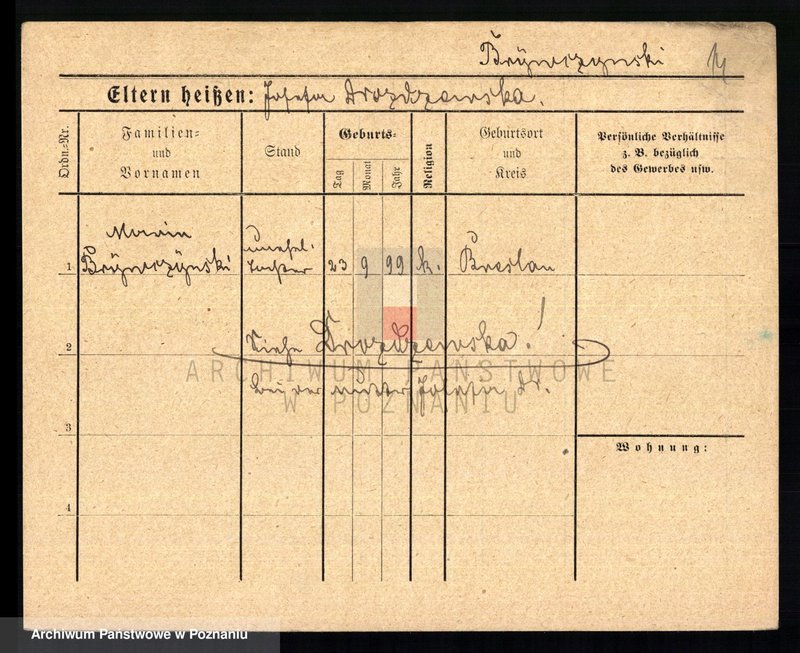 Brÿwczynski
Eltern heißen: Josefa Drozdzewska.
Ordn.-Nr.
Familien- und Vornamen
Stand
Geburts-
Tag
Monat
Jahr
Religion
Geburtsort und Kreis
Persönliche Verhältnisse
z. B. bezüglich
des Gewerbes usw.
Maria
unehel.
1 Brÿwczÿnski Tochter 23 9 99 k. Breslau
2 Siehe Drozdzewska!
bei der Mutter Josefa Dr.
3
Wohnung:
4
ARCHIWUM PAŃSTWOWE
W POZNANIU
Archiwum Państwowe w Poznaniu